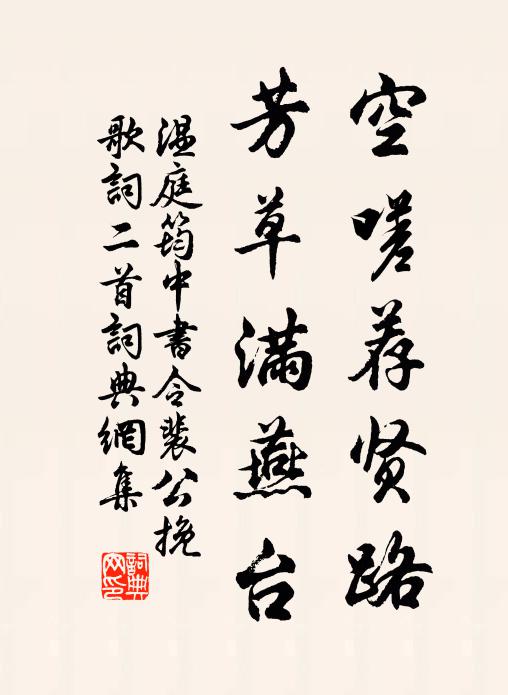 空嗟荐贤路
芳草满燕台
温庭筠中书令裴公挽
歌詞二首詞典網集
詞典网印